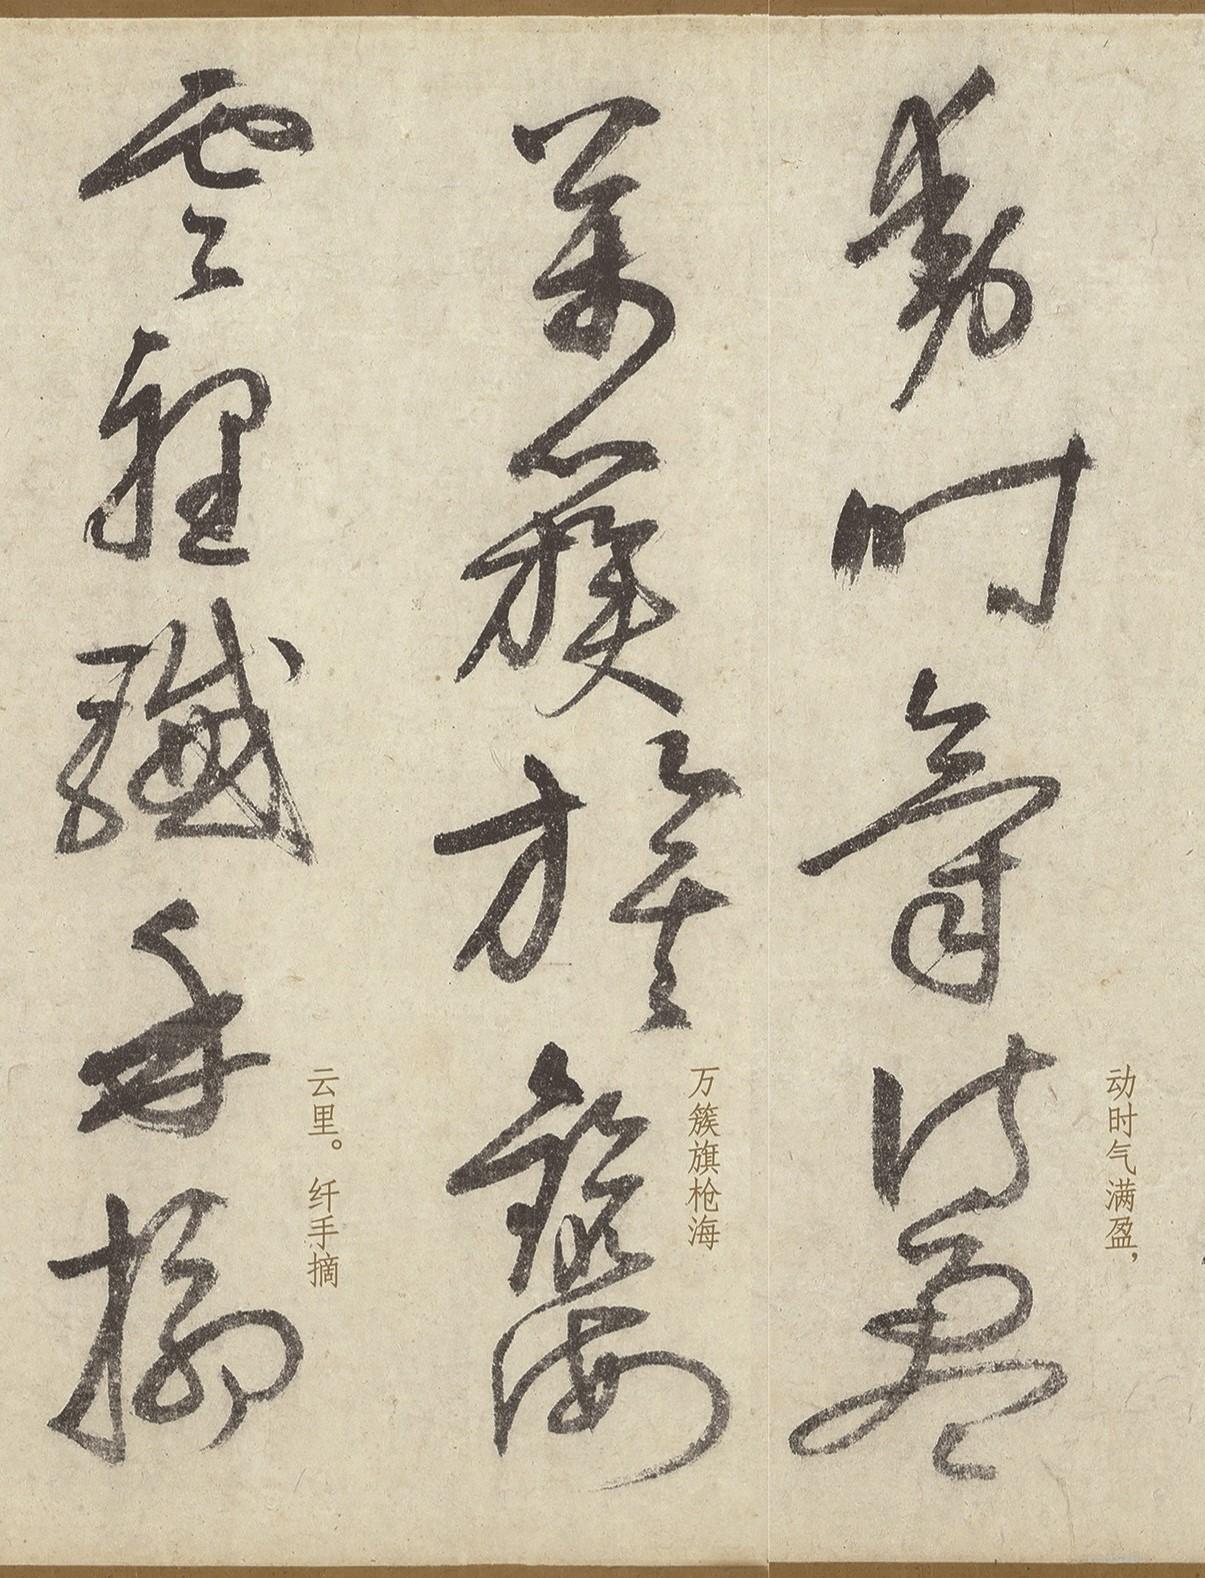 动时气满盈，
動時氣滿盈
万簇旗枪海
萬簇旗鎗海
云里。纤手摘
雲裡纖手摘